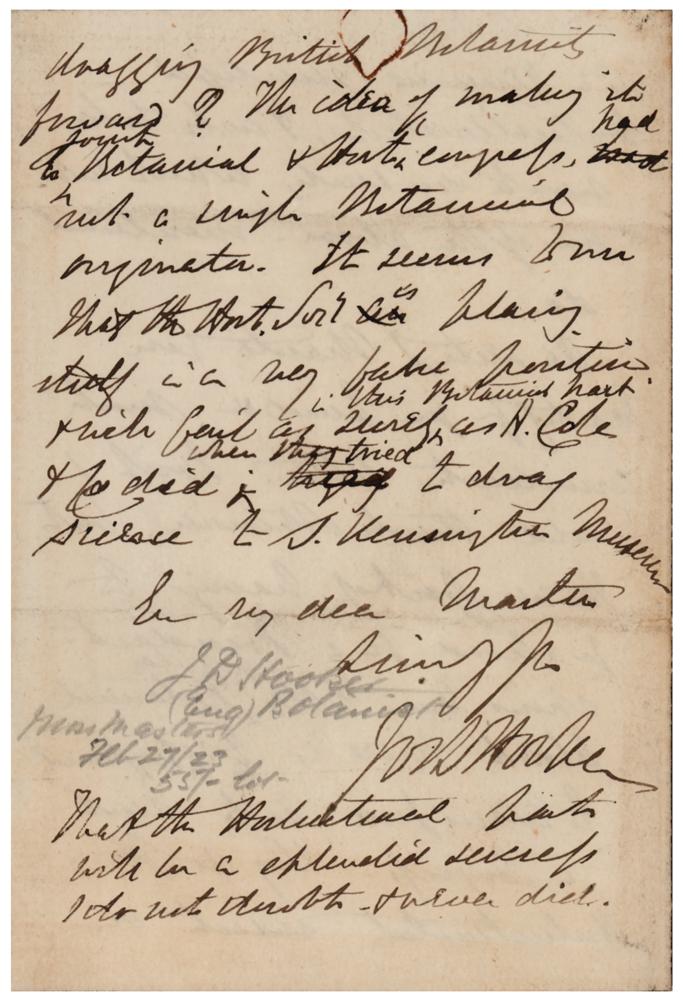 dragging British Botanists
forward & the idea of making its
had
fourth
to Botanical & Hort. congress, had
not a single Botanical
originator. It seems to me
that the Hort. Socy is placing
itself in a very false position
in this Botanical part
& will fail as surely, as H. Cole
when they tried
& Co did in trying to drag
science to S. Kensington Museum
Ever my dear Masters
Sincy yrs
J D Hooker
(Eng) Botanist
Jos D Hooker
Mrs Masters
Feb 27/23
55/- lot
That the Horticultural part
will be a splendid success
I do not doubt - & never did.